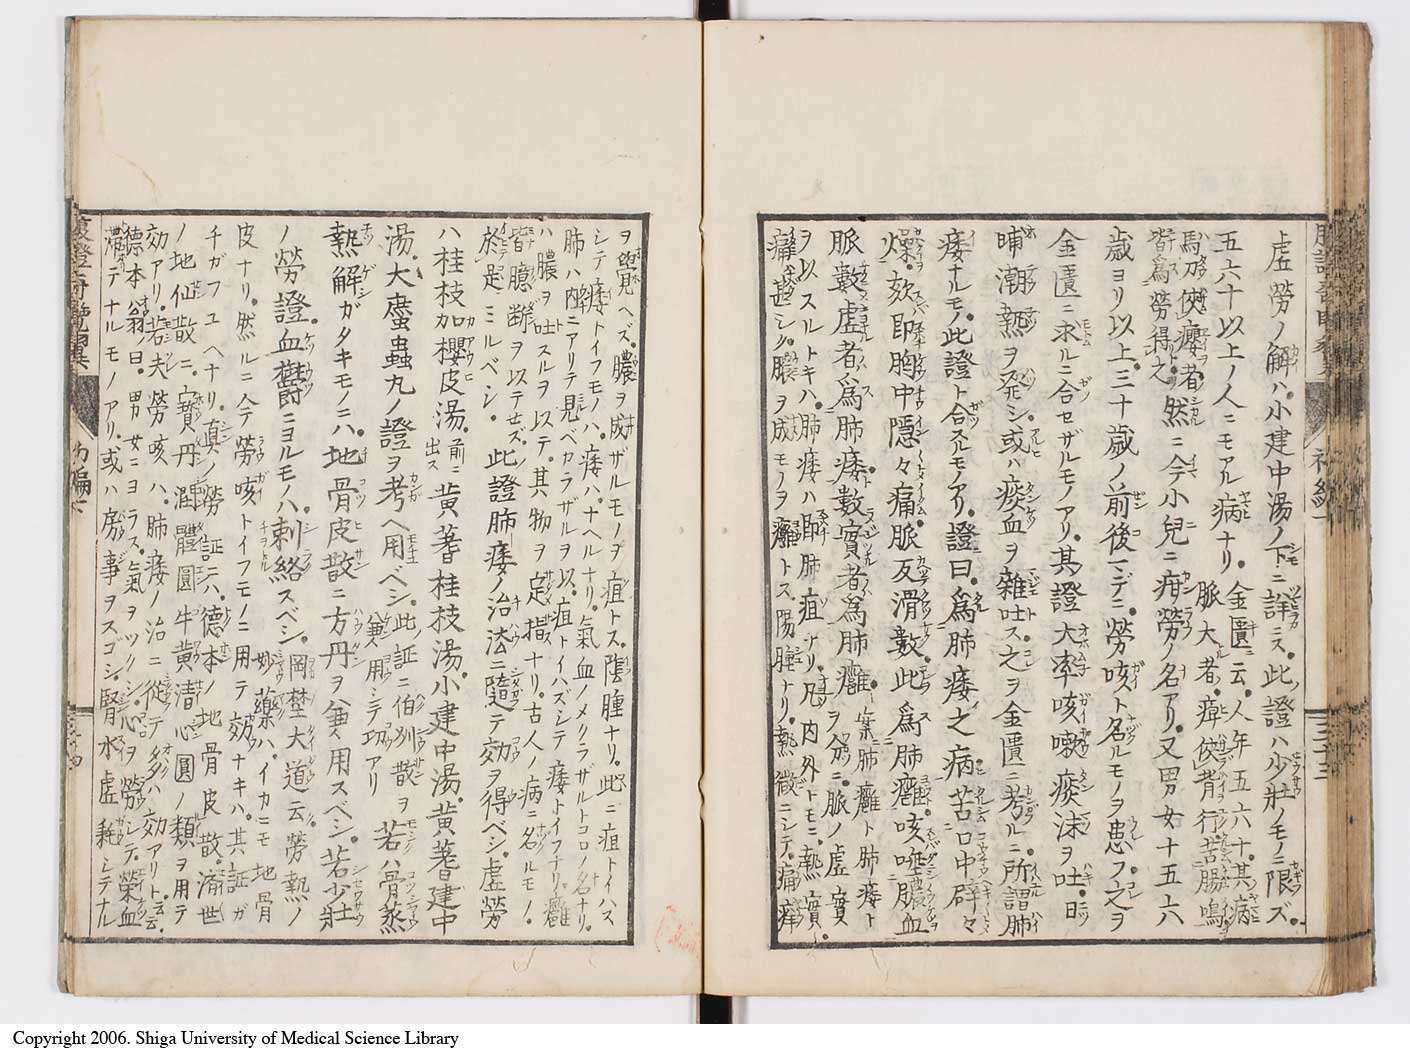 虚勞ノ解ハ小建中湯ノ下ニ詳ニス此證ハ少壯ノモノニ限ズ
五六十以上ノ人ニモアル病ナリ金匱云人年五六十其病
脈大者痺俠背行苦腸鳴
馬刀俠癭者皆爲勞得之然ニ今小兒ニ疳勞ノ名アリ又男女十五六
歳ヨリ以上三十歳ノ前後マデニ勞咳ト名ルモノヲ患フ之ヲ
金匱ニ求ルニ合セザルモノアリ其證大率咳嗽痰沫ヲ吐日
晡潮熱ヲ発シ或ハ痰血ヲ雜吐ス之ヲ金匱ニ考ルニ所謂肺
痿ナルモノ此證ト合スルモノアリ證曰爲肺痿之病若口中辟々
燥欬即胸中隱々痛脈反滑數此爲肺癰咳唾膿血
脈數虚者爲肺痿數實者爲肺癰
案肺癰ト肺痿ト
ヲ分ニ脈ノ虚實
ヲ以スルトキハ肺痿ハ即肺疽ナリ凡内外トモニ熱實
癢甚シク膿ヲ成モノヲ癰トス陽腫ナリ熱微ニシテ痛癢
ヲ覺ヘズ膿ヲ成ザルモノヲ疽トス陰腫ナリ此ニ疽トイハス
シテ痿トイフモノハ痿ハナヘルナリ氣血ノメクラザルトコロノ名ナリ
肺ハ内ニアリテ見ベカラザルヲ以疽トイハズシテ痿トイフナリ癰
ハ膿ヲ吐スルヲ以テ其物ヲ定指ナリ古人ノ病ニ名ルモノ
皆臆斷ヲ以テセズ
於是ミルベシ此證肺痿ノ治法ニ隨テ効ヲ得ベシ虚勞
ハ桂枝加櫻皮湯前ニ出ス黄耆桂枝湯小建中湯黄耆建中
湯大䗪蟲丸ノ證ヲ考ヘ用ベシ此証ニ伯州散ヲ
兼用シテ功アリ若ハ骨蒸
熱解ガタキモノニハ地骨皮散ニ方丹ヲ兼用スベシ若少壯
ノ勞證血鬱ニヨルモノハ刺絡スベシ岡埜大道云勞熱ノ
妙藥ハイカニモ地骨
皮ナリ然ルニ今勞咳トイフモノニ用テ効ナキハ其証ガ
チガフユヘナリ眞ノ勞証ニハ德本ノ地骨皮散濟世
ノ地仙散ニ寳丹潤體圓牛黄清心圓ノ類ヲ用テ
効アリ若夫勞咳ハ肺痿ノ治ニ從テ多ハ効アリト云云
德本翁ノ曰男女ニヨラス氣ヲツクシ心ヲ勞シテ榮血
滯テナルモノアリ或ハ房事ヲスゴシ腎水虚耗シテナル
三十三
Copyright 2006. Shiga University of Medical Science Library